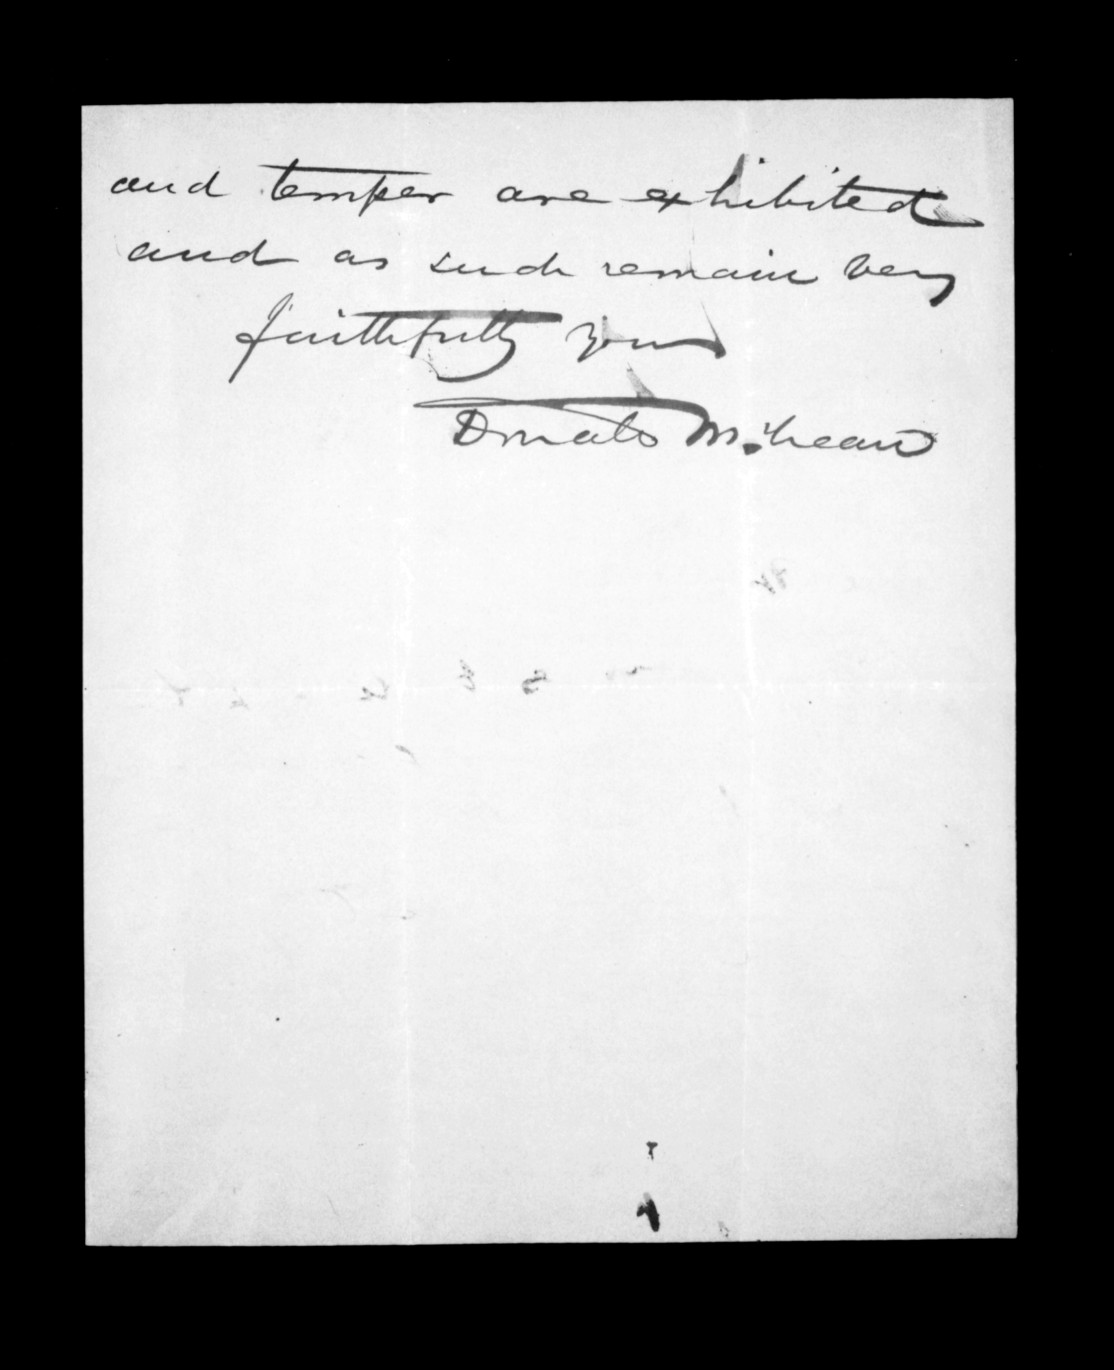 and temper are exhibited
and as such remain very
faithfully yours
Donald McLean